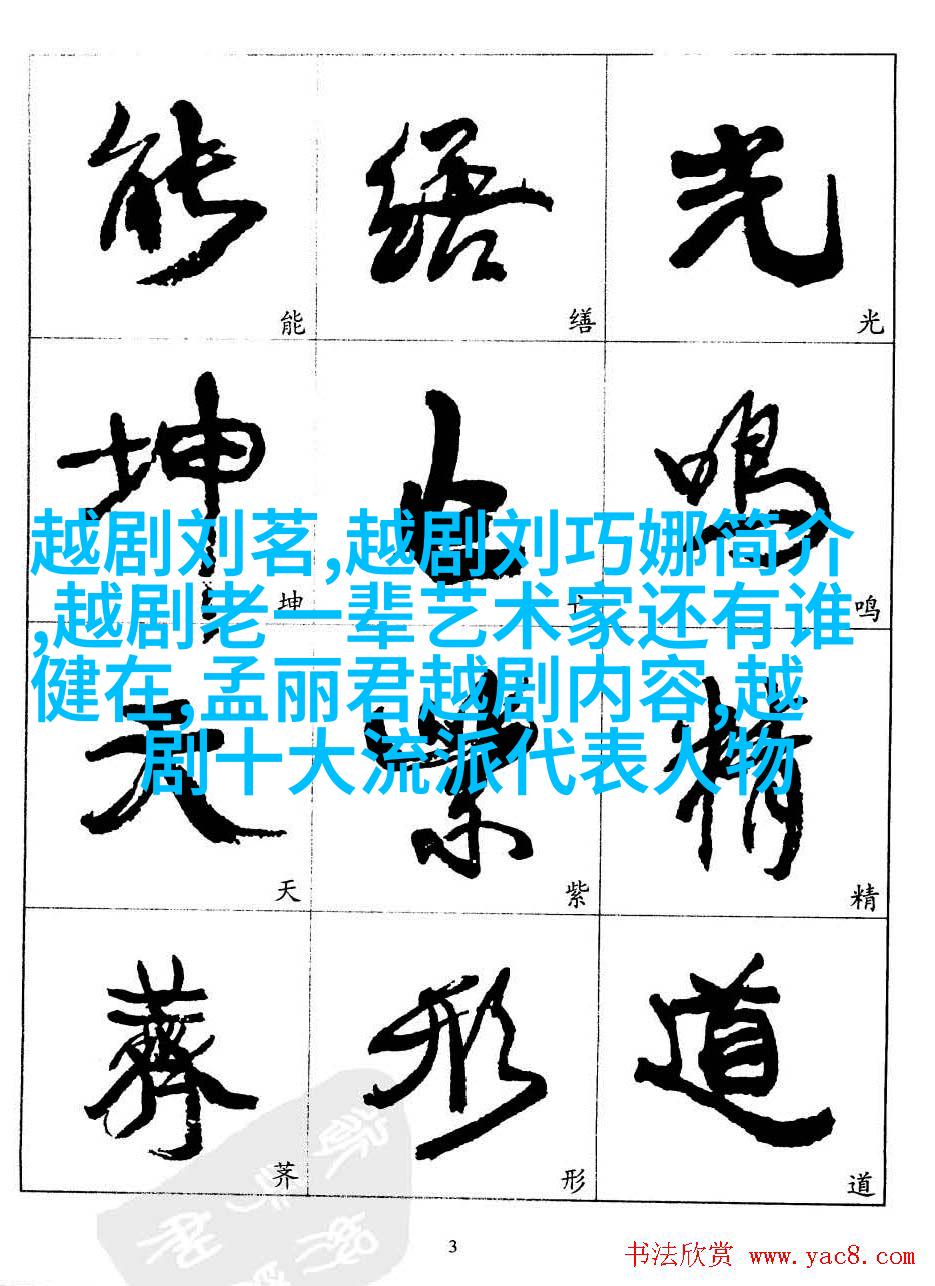 能 缮 光
能 缮 光
坤 鸣
越剧刘茗,越剧刘巧娜简介
,越剧老一辈艺术家还有谁
健在,孟丽君越剧内容,越
剧十大流派代表人物
坤 鸣
天 紫 精
天 紫 精
荠 形 道
荠 形 道
3
书法欣赏 www.yac8.com